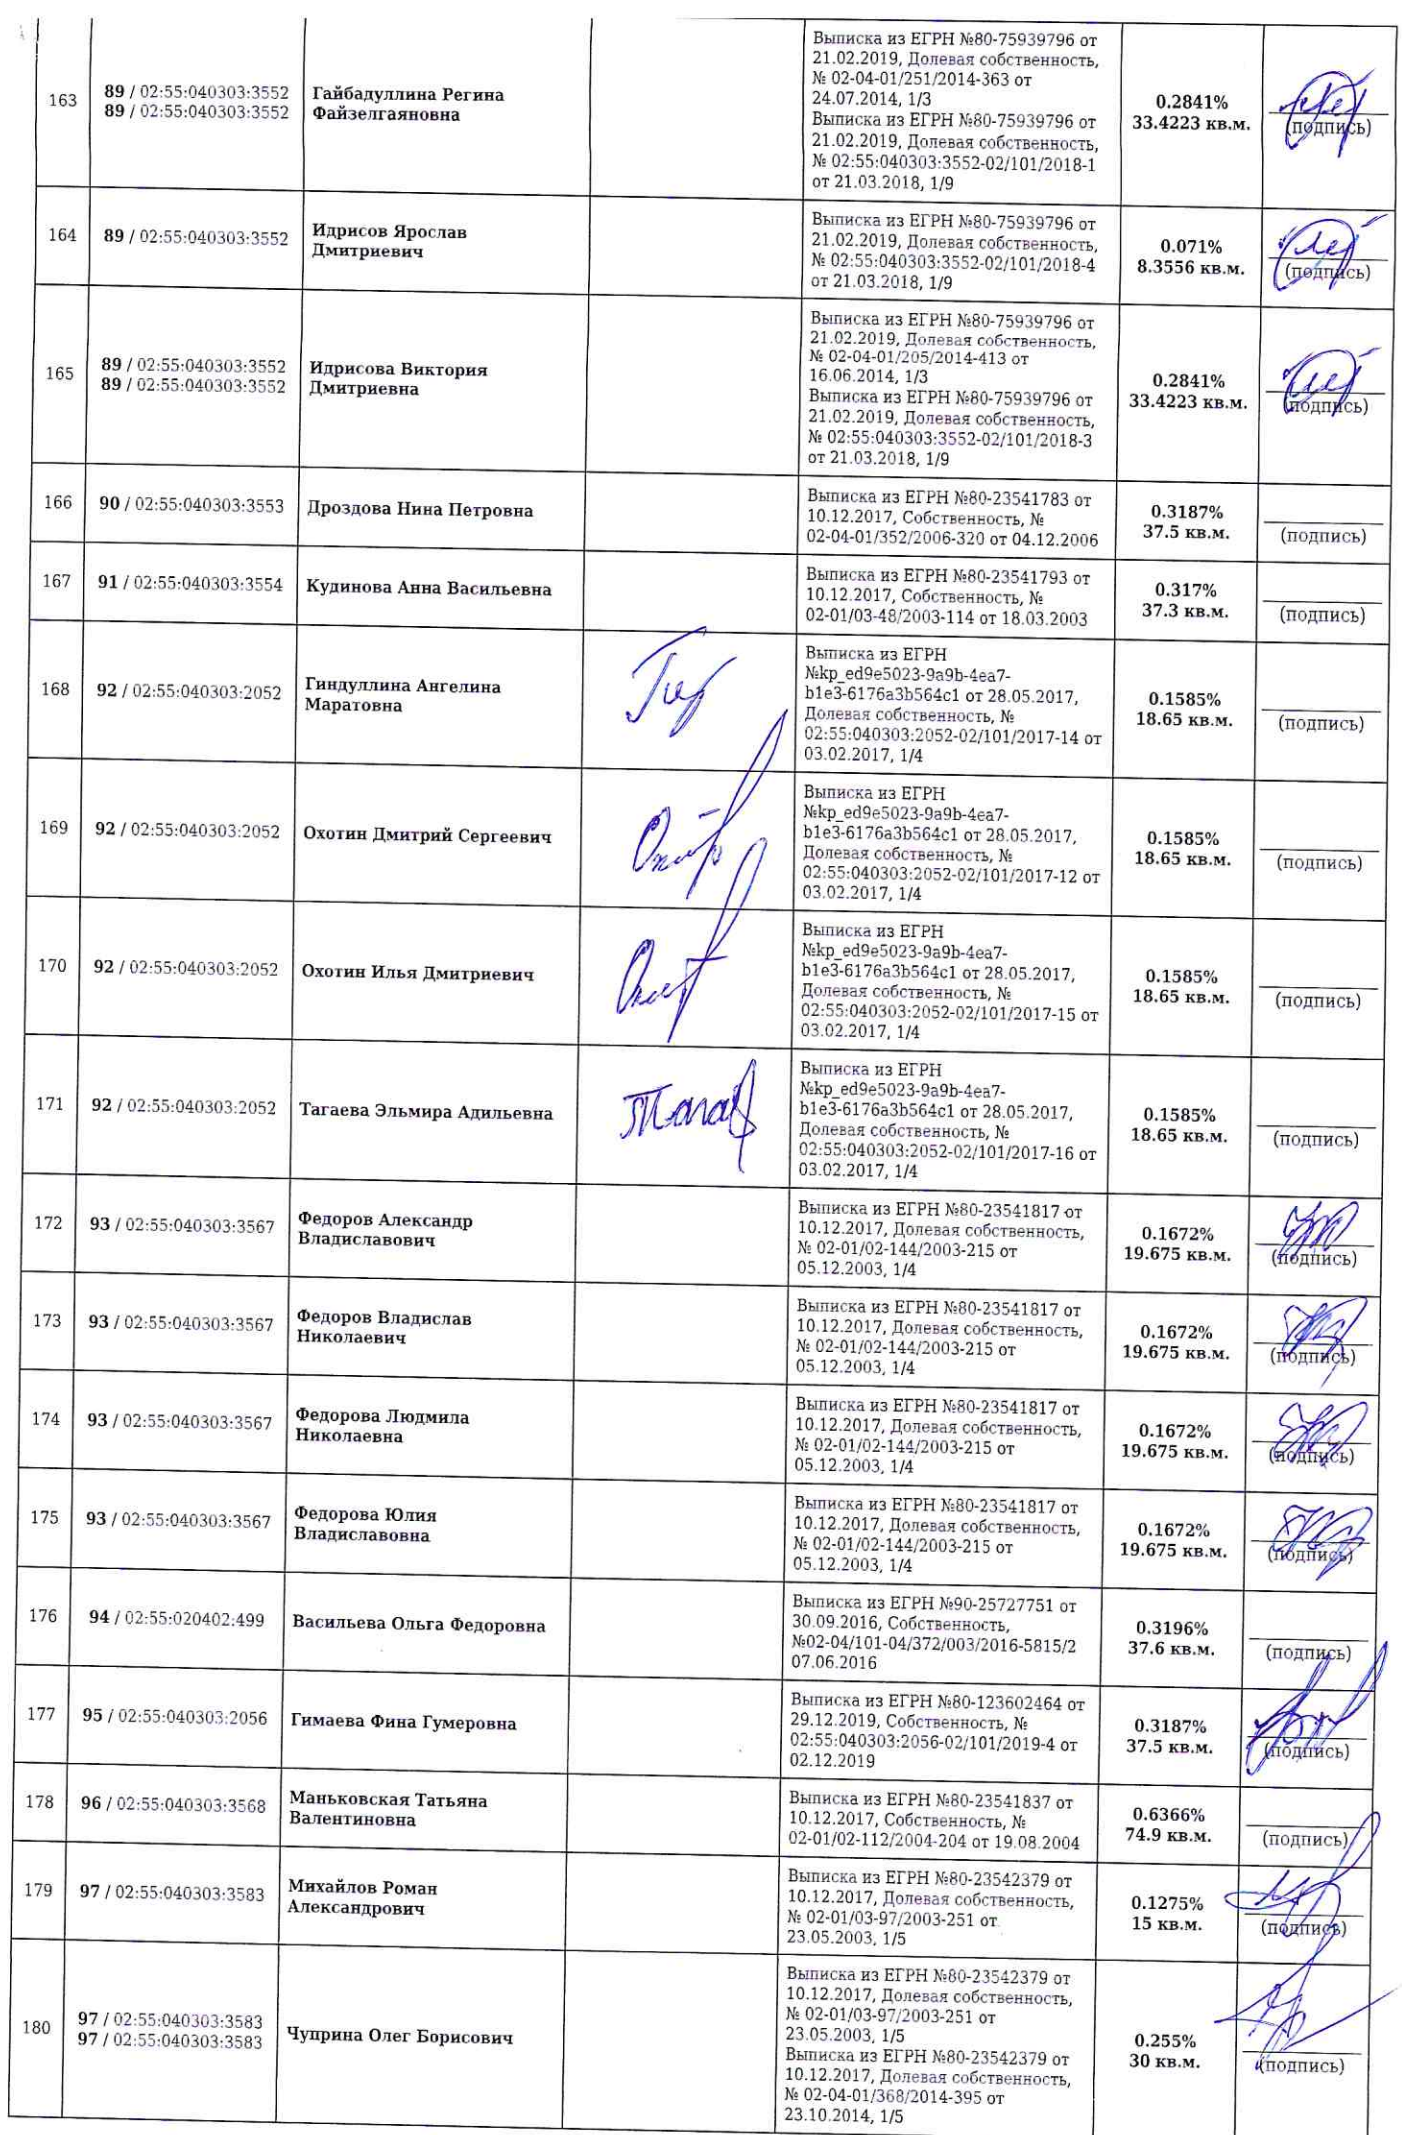 163
89 / 02:55:040303:3552
89 / 02:55:040303:3552
Гайбадуллина Регина
Файзелгаяновна
Выписка из ЕГРН №80-75939796 от
21.02.2019, Долевая собственность,
№ 02-04-01/251/2014-363 от
24.07.2014, 1/3
Выписка из ЕГРН №80-75939796 от
21.02.2019, Долевая собственность,
№ 02:55:040303:3552-02/101/2018-1
от 21.03.2018, 1/9
0.2841%
33.4223 кв.м.
(подпись)
164
89 / 02:55:040303:3552
Идрисов Ярослав
Дмитриевич
Выписка из ЕГРН №80-75939796 от
21.02.2019, Долевая собственность,
№ 02:55:040303:3552-02/101/2018-4
от 21.03.2018, 1/9
0.071%
8.3556 кв.м.
(подпись)
165
89 / 02:55:040303:3552
89 / 02:55:040303:3552
Идрисова Виктория
Дмитриевна
Выписка из ЕГРН №80-75939796 от
21.02.2019, Долевая собственность,
№ 02-04-01/205/2014-413 от
16.06.2014, 1/3
Выписка из ЕГРН №80-75939796 от
21.02.2019, Долевая собственность,
№ 02:55:040303:3552-02/101/2018-3
от 21.03.2018, 1/9
0.2841%
33.4223 кв.м.
(подпись)
166
90 / 02:55:040303:3553
Дроздова Нина Петровна
Выписка из ЕГРН №80-23541783 от
10.12.2017, Собственность, №
02-04-01/352/2006-320 от 04.12.2006
0.3187%
37.5 кв.м.
(подпись)
167
91 / 02:55:040303:3554
Кудинова Анна Васильевна
Выписка из ЕГРН №80-23541793 от
10.12.2017, Собственность, №
02-01/03-48/2003-114 от 18.03.2003
0.317%
37.3 кв.м.
(подпись)
168
92 / 02:55:040303:2052
Гиндуллина Ангелина
Маратовна
Выписка из ЕГРН
№kp_ed9e5023-9a9b-4ea7-
b1e3-6176a3b564c1 от 28.05.2017,
Долевая собственность, №
02:55:040303:2052-02/101/2017-14 от
03.02.2017, 1/4
0.1585%
18.65 кв.м.
(подпись)
169
92 / 02:55:040303:2052
Охотин Дмитрий Сергеевич
Выписка из ЕГРН
№kp_ed9e5023-9a9b-4ea7-
b1e3-6176a3b564c1 от 28.05.2017,
Долевая собственность, №
02:55:040303:2052-02/101/2017-12 от
03.02.2017, 1/4
0.1585%
18.65 кв.м.
(подпись)
170
92 / 02:55:040303:2052
Охотин Илья Дмитриевич
Выписка из ЕГРН
№kp_ed9e5023-9a9b-4ea7-
b1e3-6176a3b564c1 от 28.05.2017,
Долевая собственность, №
02:55:040303:2052-02/101/2017-15 от
03.02.2017, 1/4
0.1585%
18.65 кв.м.
(подпись)
171
92 / 02:55:040303:2052
Тагаева Эльмира Адильевна
Выписка из ЕГРН
№kp_ed9e5023-9a9b-4ea7-
b1e3-6176a3b564c1 от 28.05.2017,
Долевая собственность, №
02:55:040303:2052-02/101/2017-16 от
03.02.2017, 1/4
0.1585%
18.65 кв.м.
(подпись)
172
93 / 02:55:040303:3567
Федоров Александр
Владиславович
Выписка из ЕГРН №80-23541817 от
10.12.2017, Долевая собственность,
№ 02-01/02-144/2003-215 от
05.12.2003, 1/4
0.1672%
19.675 кв.м.
(подпись)
173
93 / 02:55:040303:3567
Федоров Владислав
Николаевич
Выписка из ЕГРН №80-23541817 от
10.12.2017, Долевая собственность,
№ 02-01/02-144/2003-215 от
05.12.2003, 1/4
0.1672%
19.675 кв.м.
(подпись)
174
93 / 02:55:040303:3567
Федорова Людмила
Николаевна
Выписка из ЕГРН №80-23541817 от
10.12.2017, Долевая собственность,
№ 02-01/02-144/2003-215 от
05.12.2003, 1/4
0.1672%
19.675 кв.м.
(подпись)
175
93 / 02:55:040303:3567
Федорова Юлия
Владиславовна
Выписка из ЕГРН №80-23541817 от
10.12.2017, Долевая собственность,
№ 02-01/02-144/2003-215 от
05.12.2003, 1/4
0.1672%
19.675 кв.м.
(подпись)
176
94 / 02:55:020402:499
Васильева Ольга Федоровна
Выписка из ЕГРН №90-25727751 от
30.09.2016, Собственность,
№02-04/101-04/372/003/2016-5815/2
07.06.2016
0.3196%
37.6 кв.м.
(подпись)
177
95 / 02:55:040303:2056
Гимаева Фина Гумеровна
Выписка из ЕГРН №80-123602464 от
29.12.2019, Собственность, №
02:55:040303:2056-02/101/2019-4 от
02.12.2019
0.3187%
37.5 кв.м.
(подпись)
178
96 / 02:55:040303:3568
Маньковская Татьяна
Валентиновна
Выписка из ЕГРН №80-23541837 от
10.12.2017, Собственность, №
02-01/02-112/2004-204 от 19.08.2004
0.6366%
74.9 кв.м.
(подпись)
179
97 / 02:55:040303:3583
Михайлов Роман
Александрович
Выписка из ЕГРН №80-23542379 от
10.12.2017, Долевая собственность,
№ 02-01/03-97/2003-251 от
23.05.2003, 1/5
0.1275%
15 кв.м.
(подпись)
180
97 / 02:55:040303:3583
97 / 02:55:040303:3583
Чуприна Олег Борисович
Выписка из ЕГРН №80-23542379 от
10.12.2017, Долевая собственность,
№ 02-01/03-97/2003-251 от
23.05.2003, 1/5
Выписка из ЕГРН №80-23542379 от
10.12.2017, Долевая собственность,
№ 02-04-01/368/2014-395 от
23.10.2014, 1/5
0.255%
30 кв.м.
(подпись)